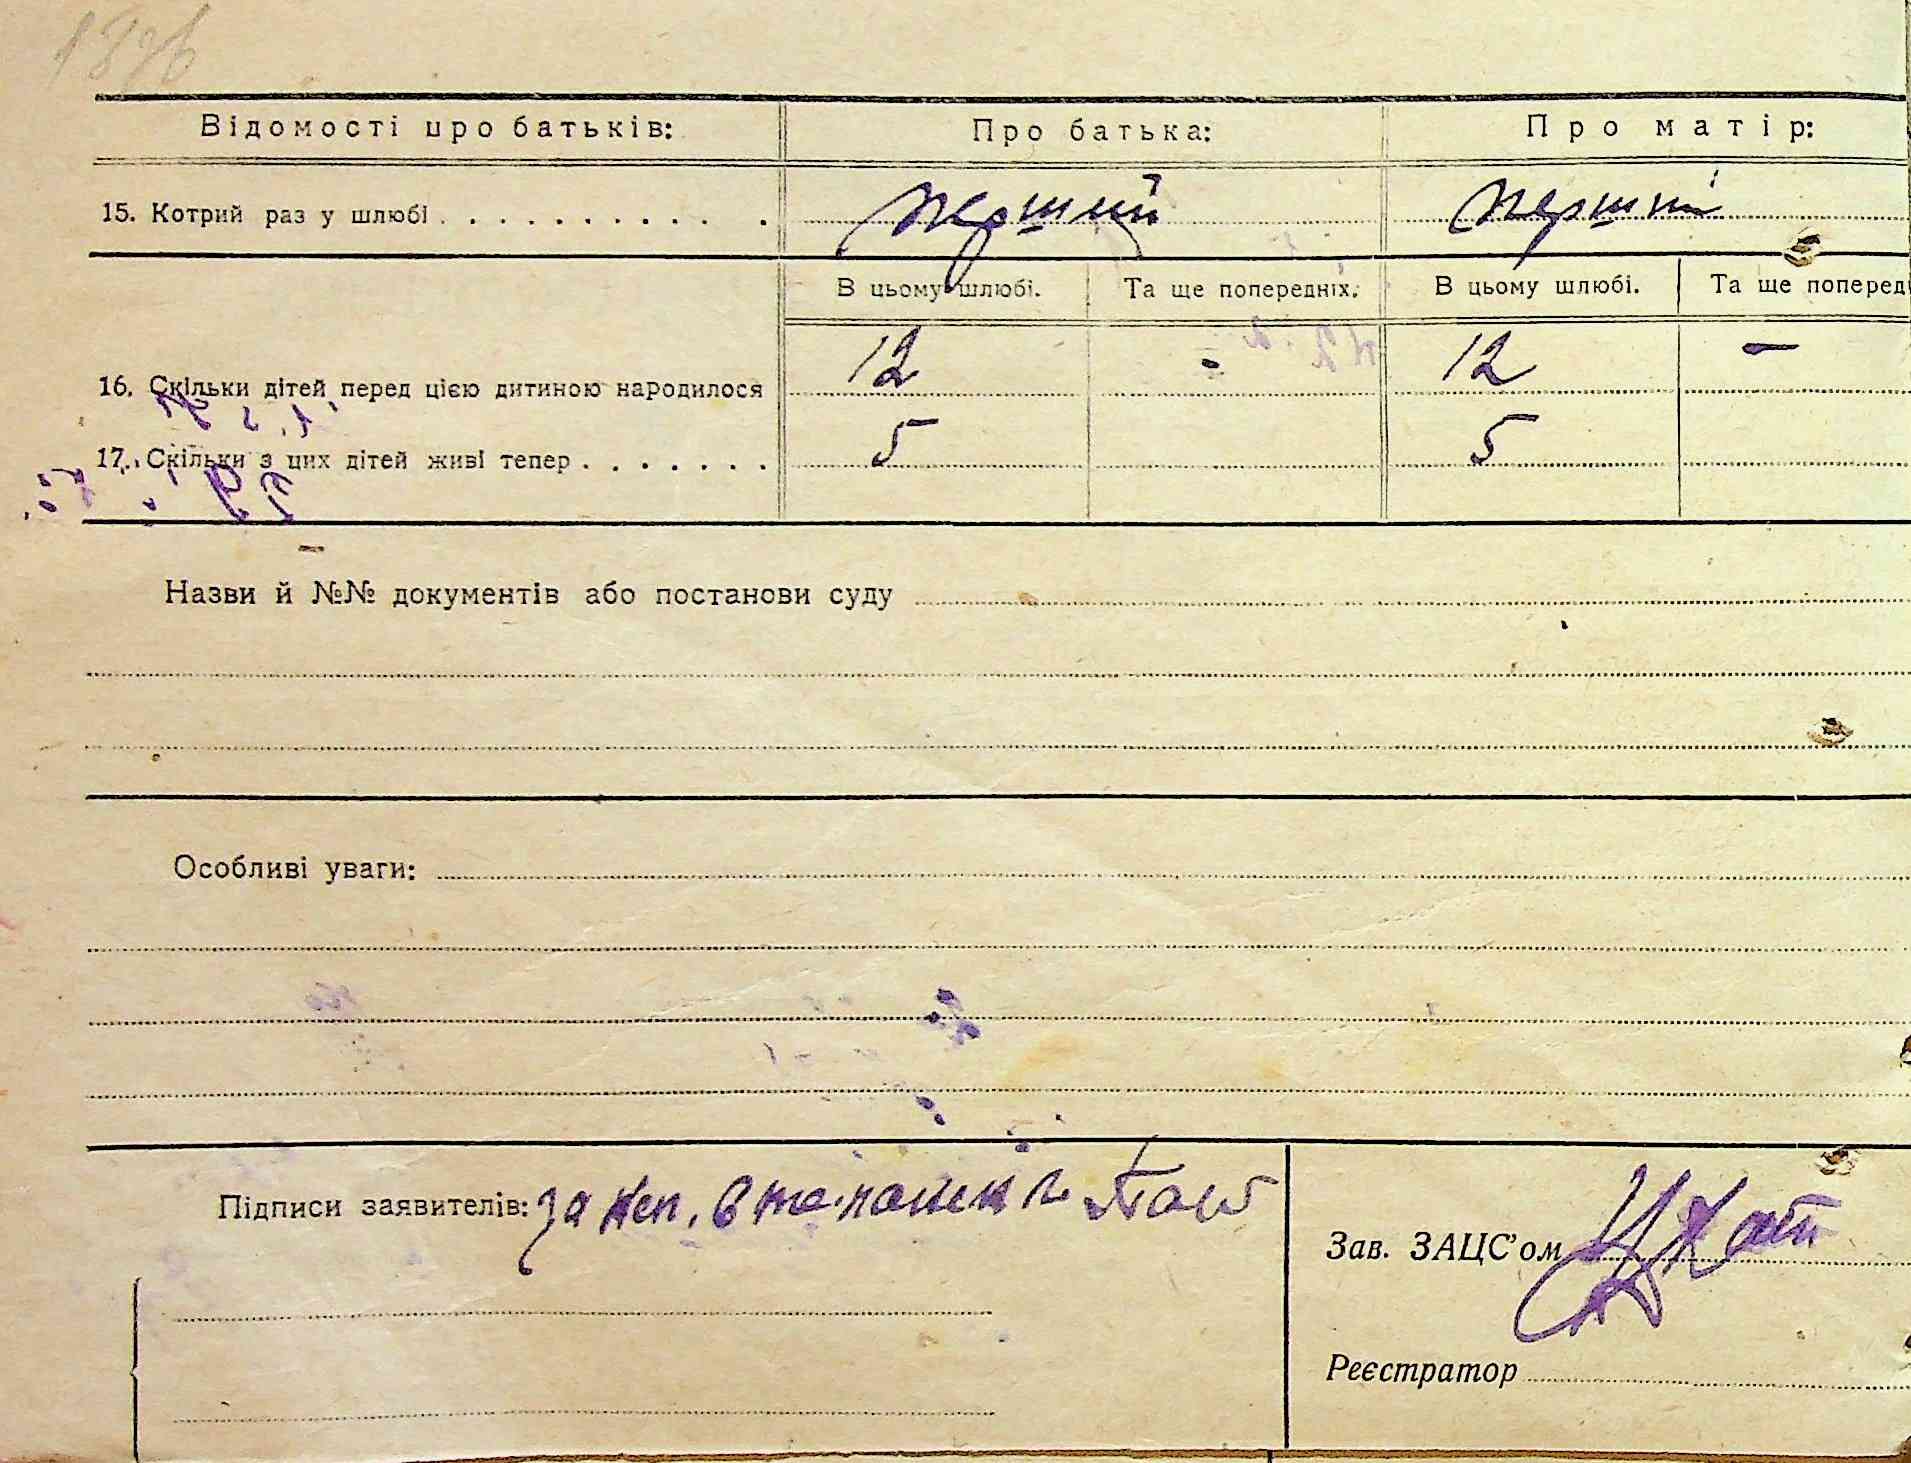 1876
Відомості про батьків: Про батька: Про матір:
15. Котрий раз у шлюбі . . . . . . . . . . . перший перший
В цьому шлюбі. Та ще попередніх. В цьому шлюбі. Та ще поперед
16. Скільки дітей перед цією дитиною народилося 12 - 12 -
17. Скільки з цих дітей живі тепер . . . . . . . 5 5
Назви й №№ документів або постанови суду
Особливі уваги:
Підписи заявителів: за неп.
Зав. ЗАЦС'ом
Реєстратор